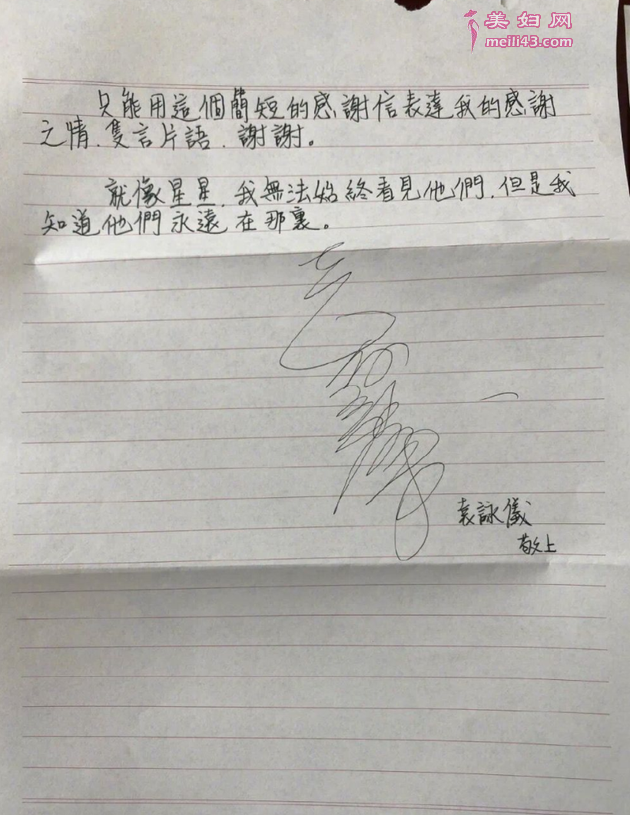 美妇网
meili43.com
只能用這個簡短的感謝信表達我的感謝
之情、隻言片語、謝謝。
就像星星、我無法始終看見他們、但是我
知道他們永遠在那裏。
袁詠儀
敬上